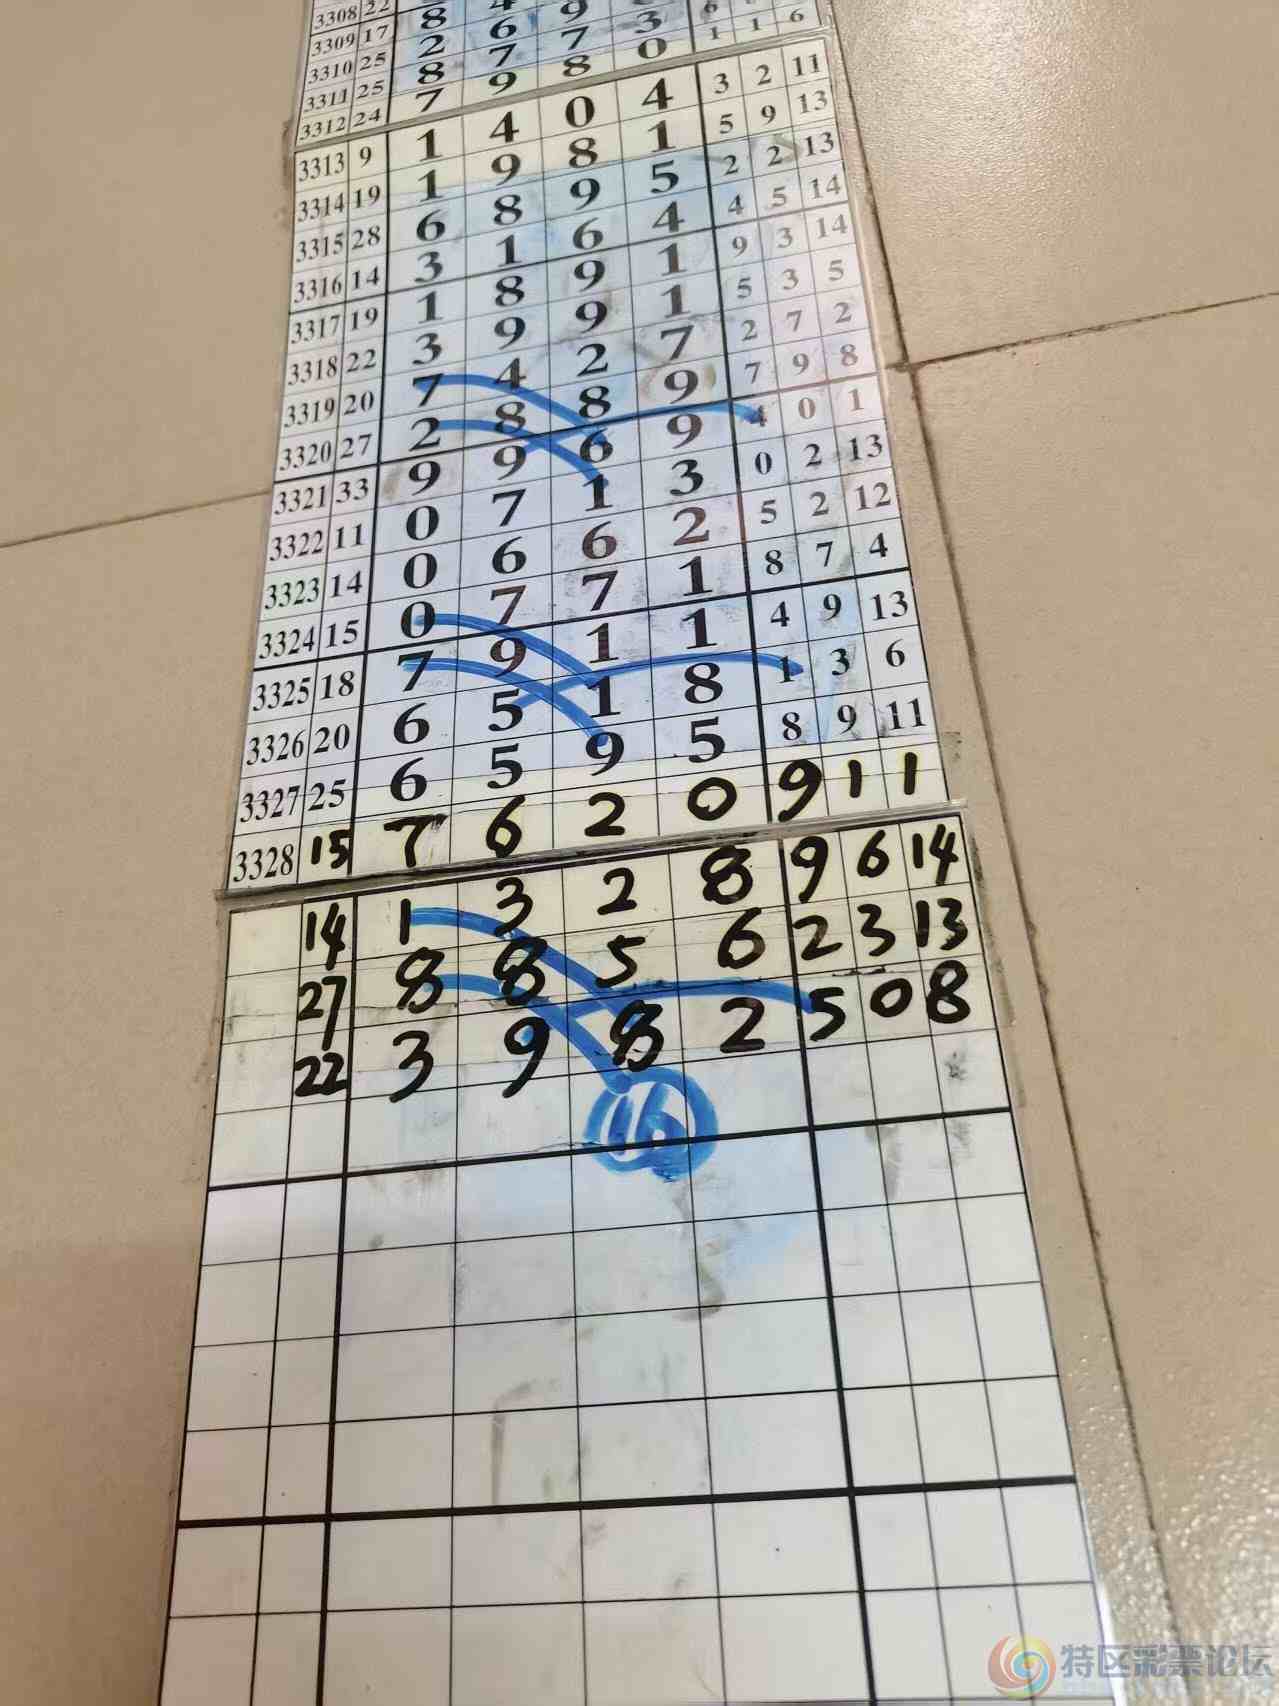 3308 22
3309 17 8 4
3310 25 2 6 9
3311 25 8 7 7 3
3312 24 7 9 8 0 1 1 6
3313 9 1 4 0 4 3 2 11
3314 19 1 9 8 1 5 9 13
3315 28 6 8 9 5 2 2 13
3316 14 3 1 6 4 4 5 14
3317 19 1 8 9 1 9 3 14
3318 22 3 9 9 1 5 3 5
3319 20 7 4 2 7 2 7 2
3320 27 2 8 8 9 7 9 8
3321 33 9 9 6 9 4 0 1
3322 11 0 7 1 3 0 2 13
3323 14 0 6 6 2 5 2 12
3324 15 0 7 7 1 8 7 4
3325 18 7 9 1 1 4 9 13
3326 20 6 5 1 8 1 3 6
3327 25 6 5 9 5 8 9 11
3328 15 7 6 2 0 9 1 1
14 1 3 2 8 9 6 14
27 8 8 5 6 2 3 13
22 3 9 8 2 5 0 8
16
特区彩票论坛